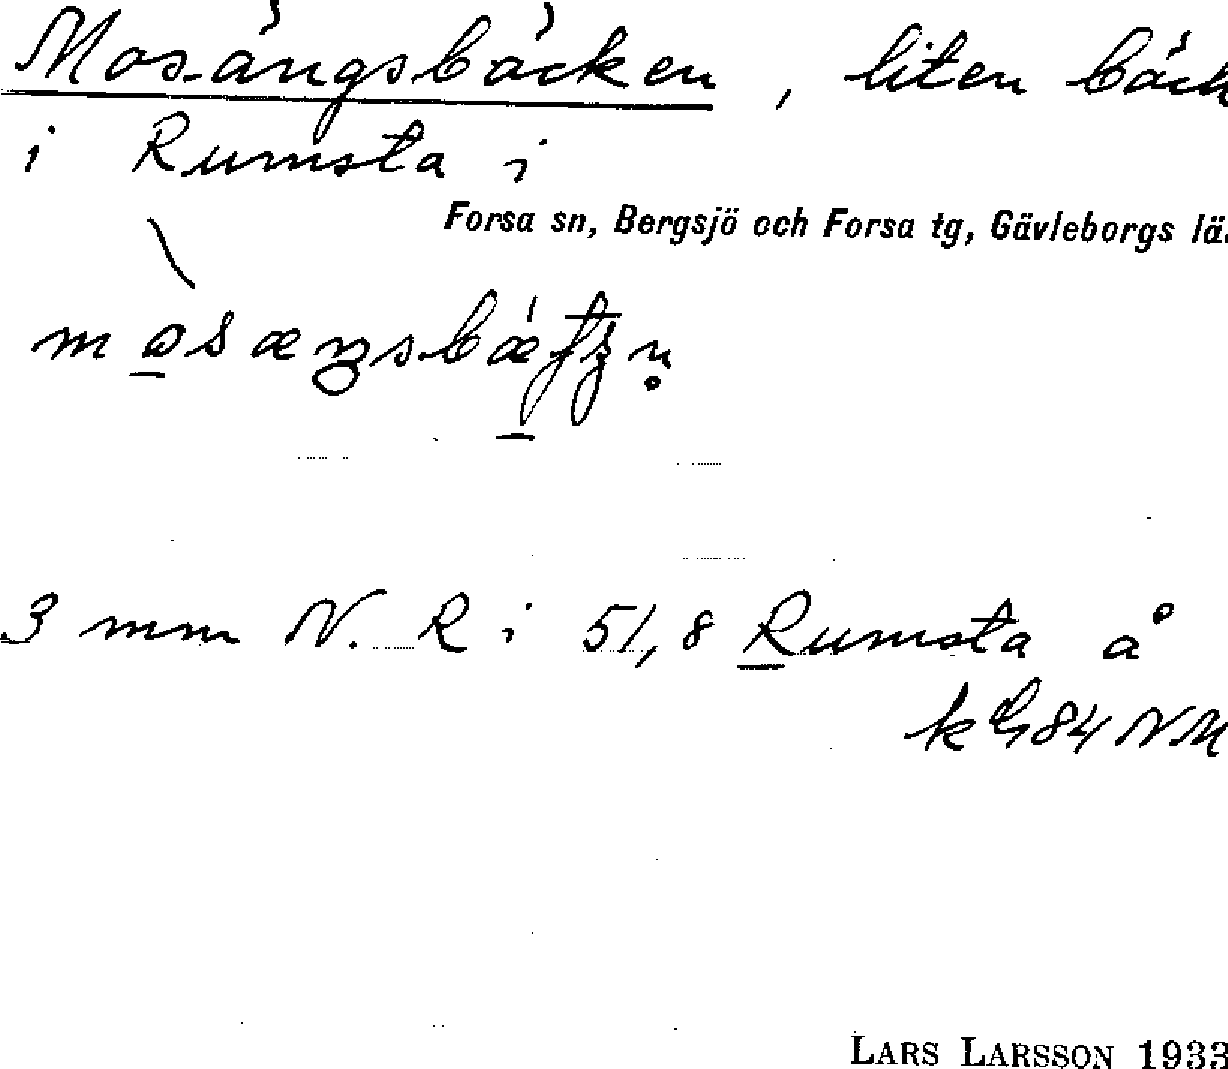 Mosängsbäcken, liten bäck
i Rumsta i
Forsa sn, Bergsjö och Forsa tg, Gävleborgs lä
3 mm N. R i 51,8 Rumsta å
LARS LARSSON 1933